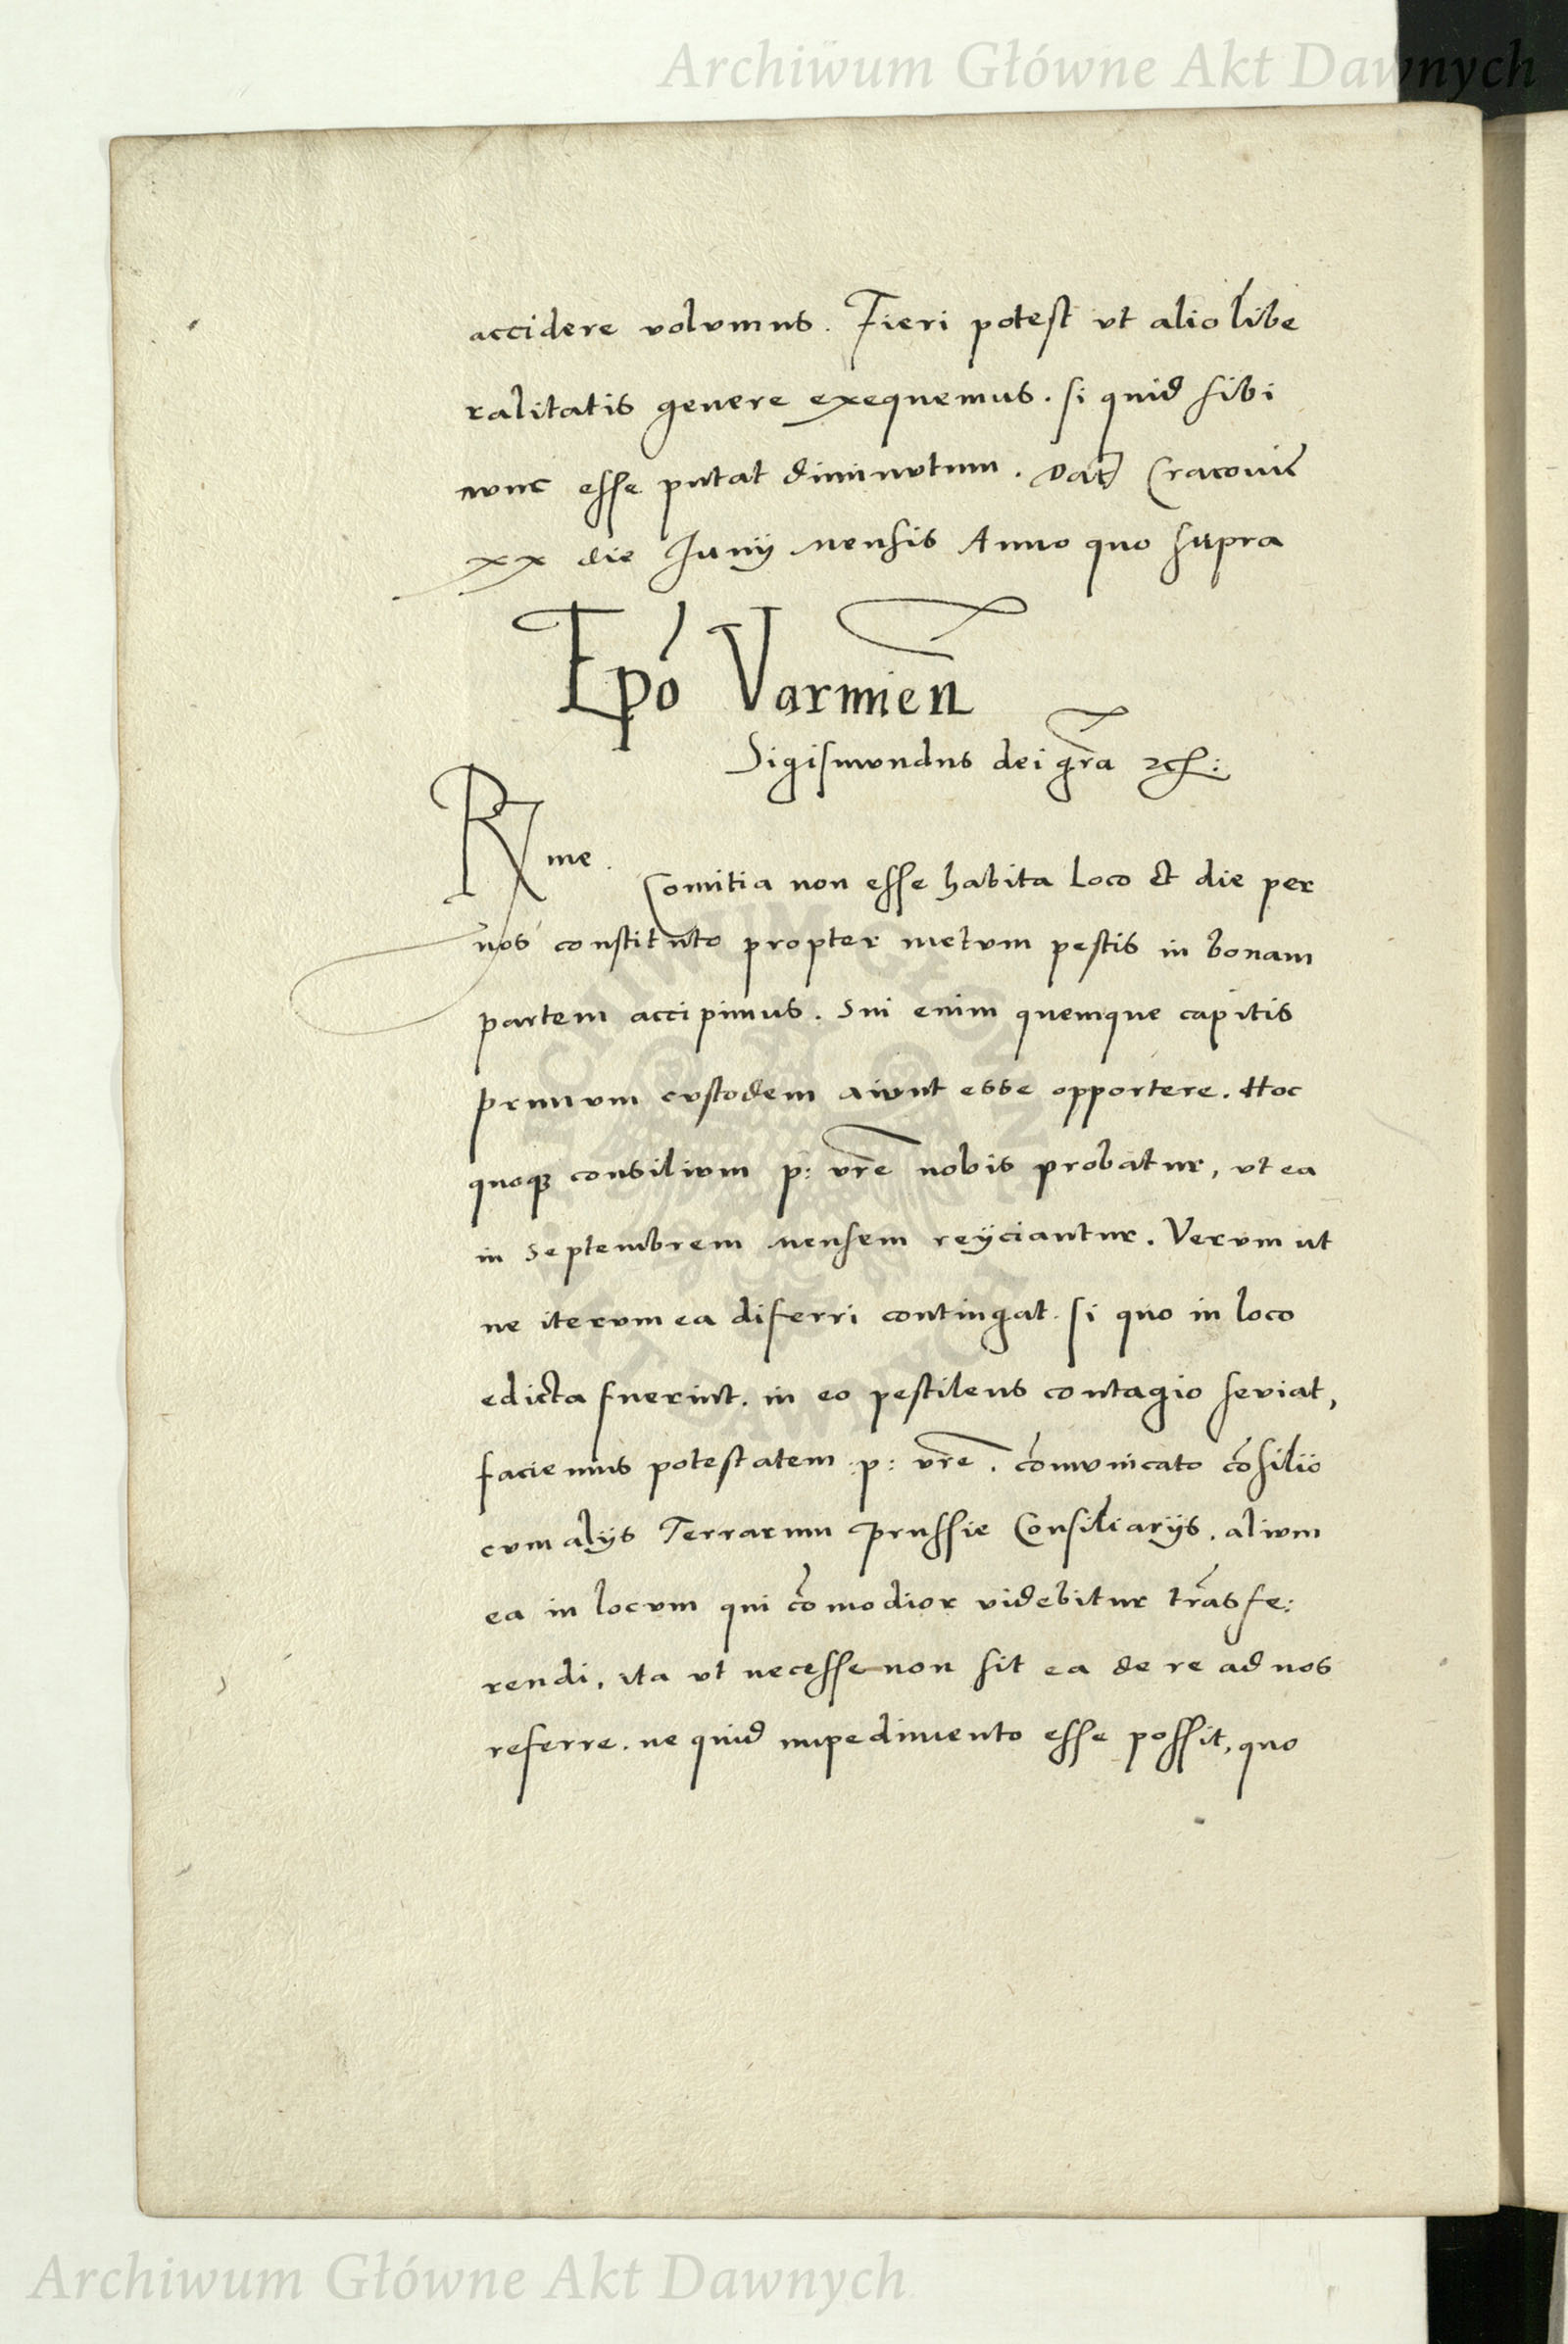 Archiwum Główne Akt Dawnych
accidere volumus. Fieri potest ut alio libe
ralitatis genere exequemus. si quid sibi
nunc esse putat diminutum. Dat Cracovie
xx die Junij mensis Anno quo supra
Epo Varmien
Sigismundus dei gra etc:
Rme.
Comitia non esse habita loco et die per
nos constituto propter metum pestis in bonam
partem accipimus. Sui enim quemque capitis
primum custodem aiunt esse opportere. Hoc
quoque consilium p: vre nobis probatur, ut ea
in Septembrem mensem reijciantur. Verum ut
ne iterum ea diferri contingat. si quo in loco
edicta fuerint. in eo pestilens contagio seviat,
faciemus potestatem :p: vre. comunicato cosilio
cum alijs Terrarum Prussie Consiliarijs. alium
ea in locum qui comodior videbitur trasfe:
rendi, ita ut necesse non sit ea de re ad nos
referre. ne quid impedimento esse possit, quo
Archiwum Główne Akt Dawnych